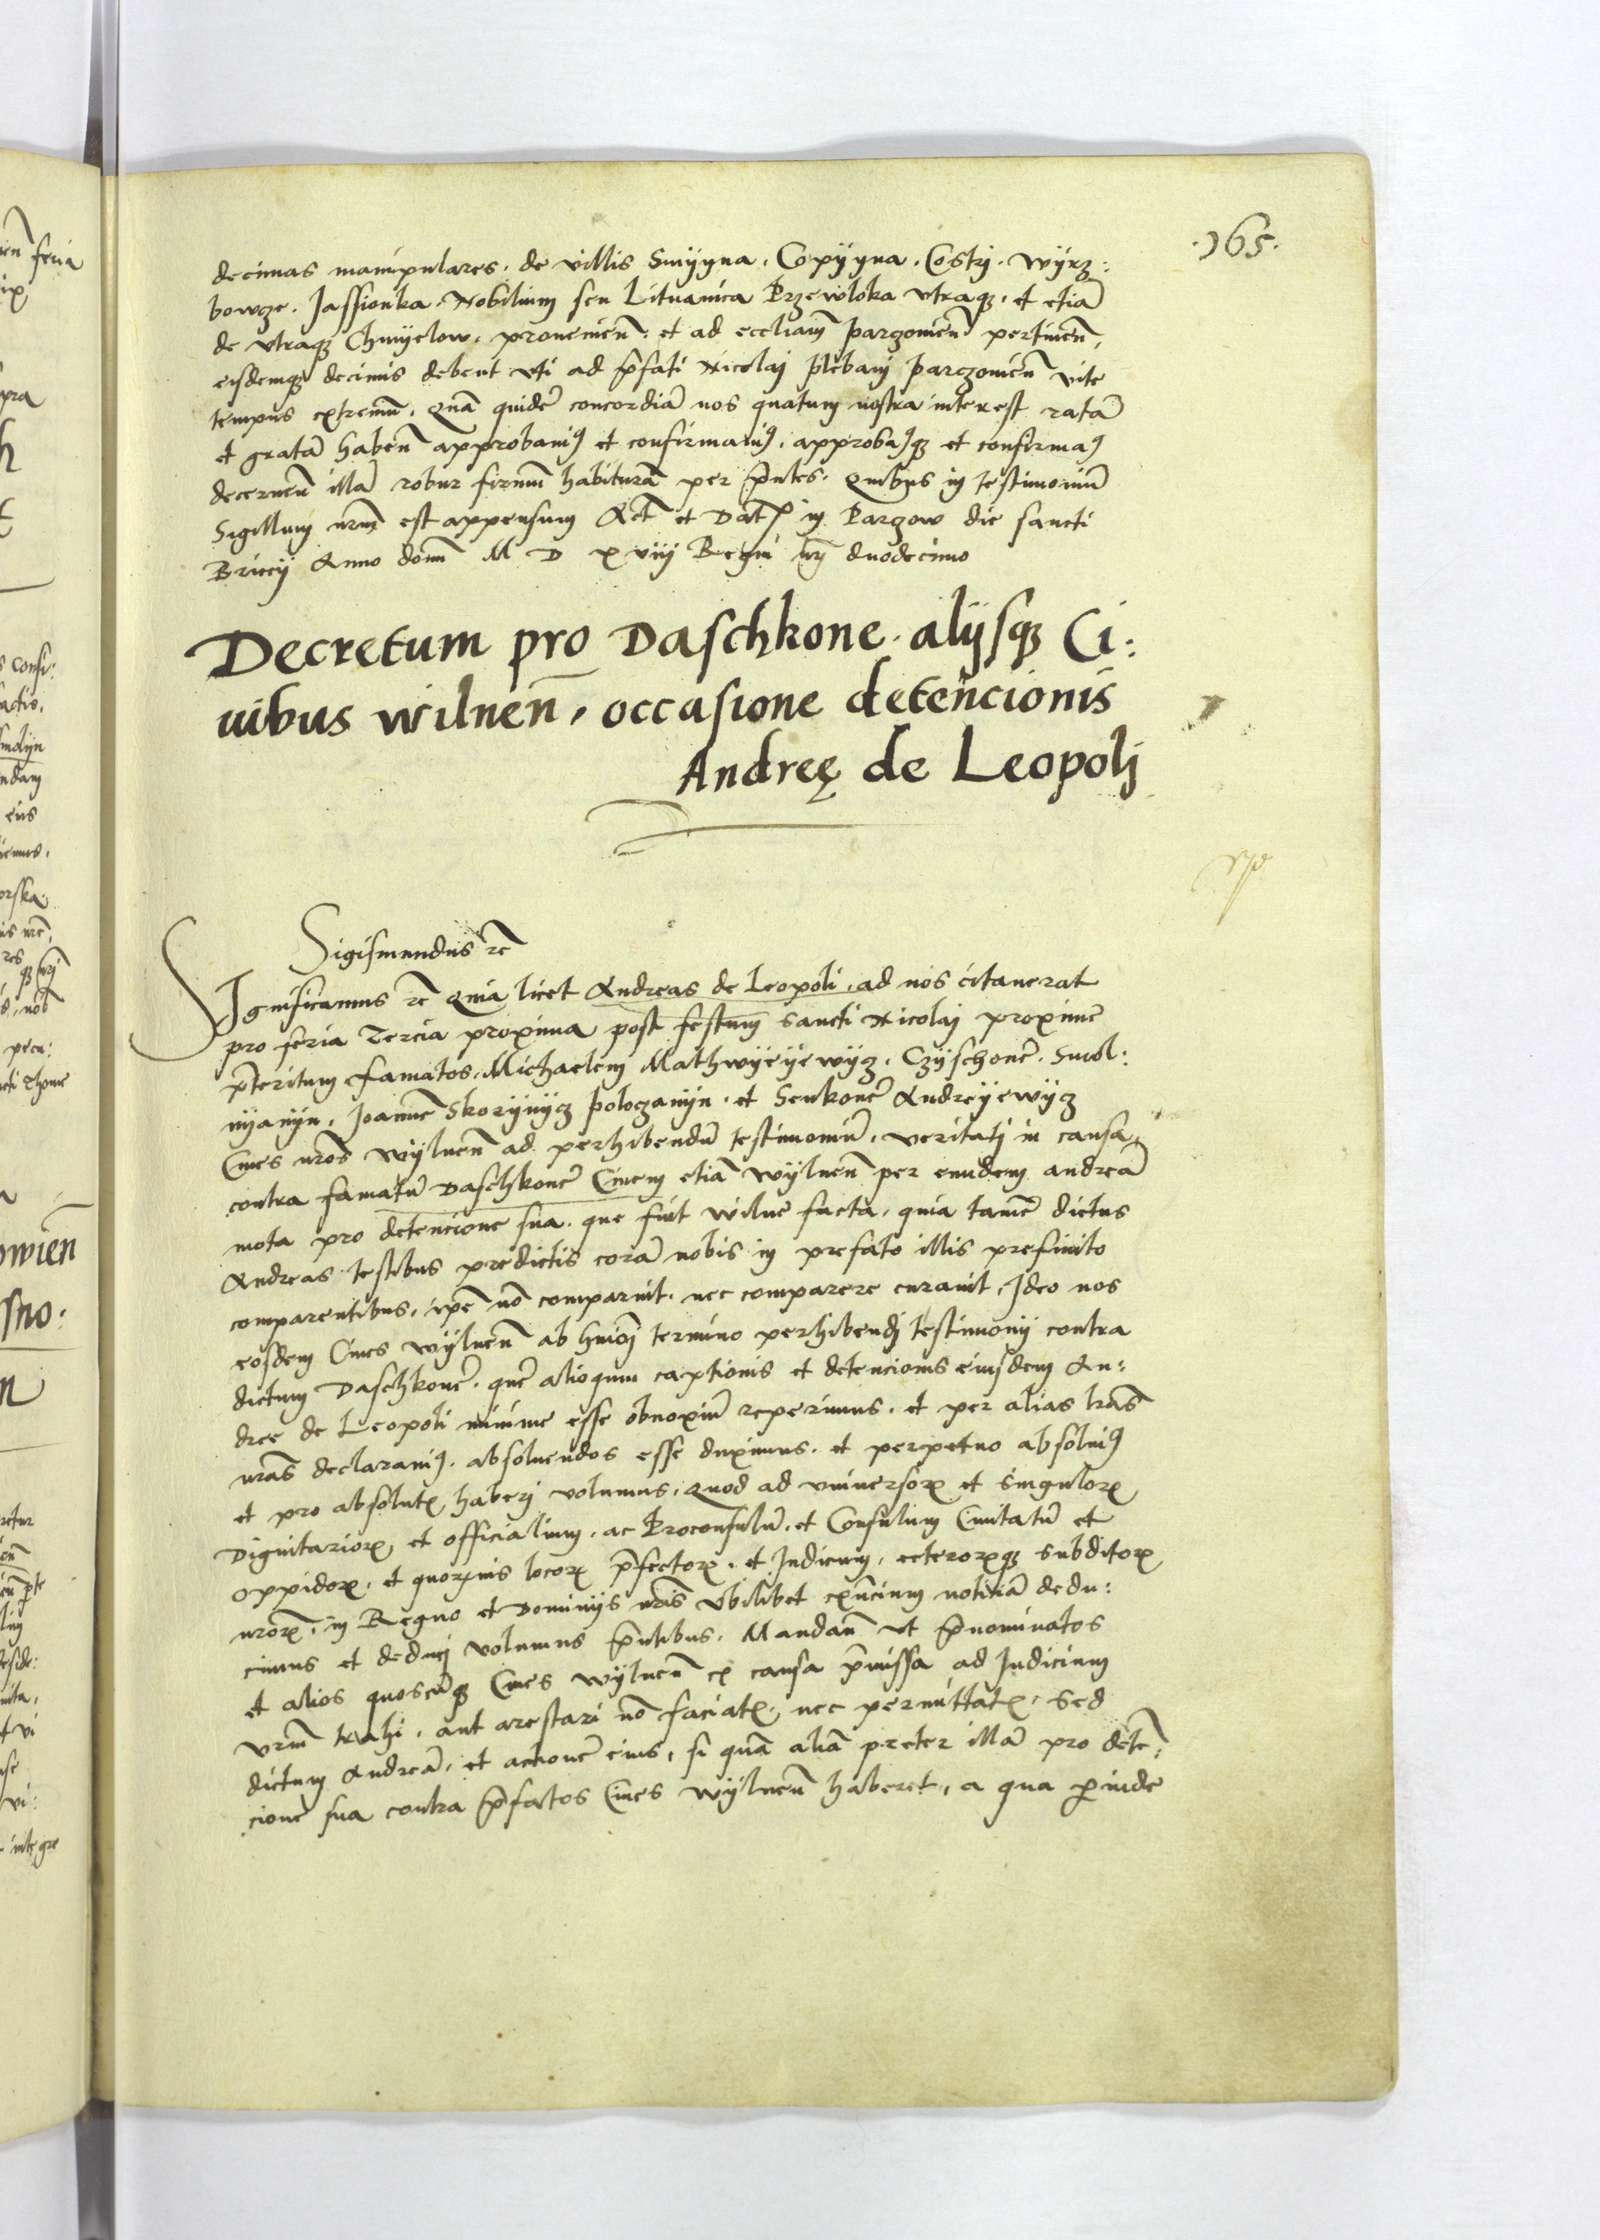 ·165·
decimas manipulares. de villis Smyyna. Copyyna. Costry. Wyrz:
bowze. Jassionka. Nobilium seu Lituanica Przewloka vtraqȝ. et etiā
de vtraqȝ Chmyelow. prouenien̄. et ad eccliam̄ parczouien̄ pertinen̄,
eisdemqȝ decimis debent vti ad p̄fati Nicolaj plebanj parczouien̄ vite
tempus extremū. Quā quidē concordiā nos quatum nostra interest ratā
et gratā haben̄ approbauimꝰ et confirmauimꝰ. approbamꝰqȝ et confirmamꝰ
decernen̄ illā robur firmū habiturā per p̄ntes. Quibus in testimoniū
Sigillum nrm̄ est appensum Act̄ et Dat̄ in Parczow die sancti
Briccij Anno domī M D xviij Regni nrj̄ duodecimo
Decretum pro Daschkone. alijsqȝ Ci:
uibus wilnen̄, occasione detencionis
Andreę de Leopolj
Sigismundus rc̄
Significamus rc̄ Quia licet Andreas de Leopoli, ad nos citauerat
pro feria Tercia proxima post festum sancti Nicolaj proxime
p̄teritum famatos. Michaelem Mathwyeyewycz. Czyschonē. Smol:
nyanyn. Joannē Skorynycz poloczanyn. et Senkonē Andreyewycz
Ciues nros̄ wylnen̄ ad perhibendū testimoniū. veritatj in causa,
contra famatū Daschkonē Ciuem etiā wylnen̄ per eundem andreā
mota pro detencione sua. que fuit wilne facta. quia tamē dictus
Andreas testibus predictis corā nobis in prefato illis prefinito
comparentibus. ipē nō comparuit. nec comparere curauit, Ideo nos
eosdem Ciues wylnen̄ ab hmōi termino perhibendj testimonij contra
dictum Daschkonē. quē alioquin captionis et detencionis eiusdem An:
dree de Leopoli minime esse obnoxiū reperimus. et per alias lrās
nrās declarauimꝰ. absoluendos esse duximus. et perpetuo absoluimꝰ
et pro absolutꝭ haberj volumus. Quod ad vniuersoꝝ et singuloꝝ
Dignitarioꝝ et officialium. ac Proconsulū. et Consulum Ciuitatū et
oppidoꝝ. et quoꝝuis locoꝝ p̄fectoꝝ. et Judicum, ceteroꝝqȝ subditoꝝ
nroꝝ. in Regno et Dominijs nrīs vbilibet exn̄cium noticiā dedu:
cimus et deducj volumus p̄ntibus. Mandan̄ vt p̄nominatos
et alios quoscūqȝ Ciues wylnen̄ ex causa p̄missa ad Judicium
vrm̄ trahi, aut arestari nō faciatꝭ, nec permittatꝭ. Sed
dictum Andreā, et actionē eius, si quā aliā preter illā pro detē:
cione sua contra p̄fatos Ciues wylnen̄ haberet, a qua ꝑinde